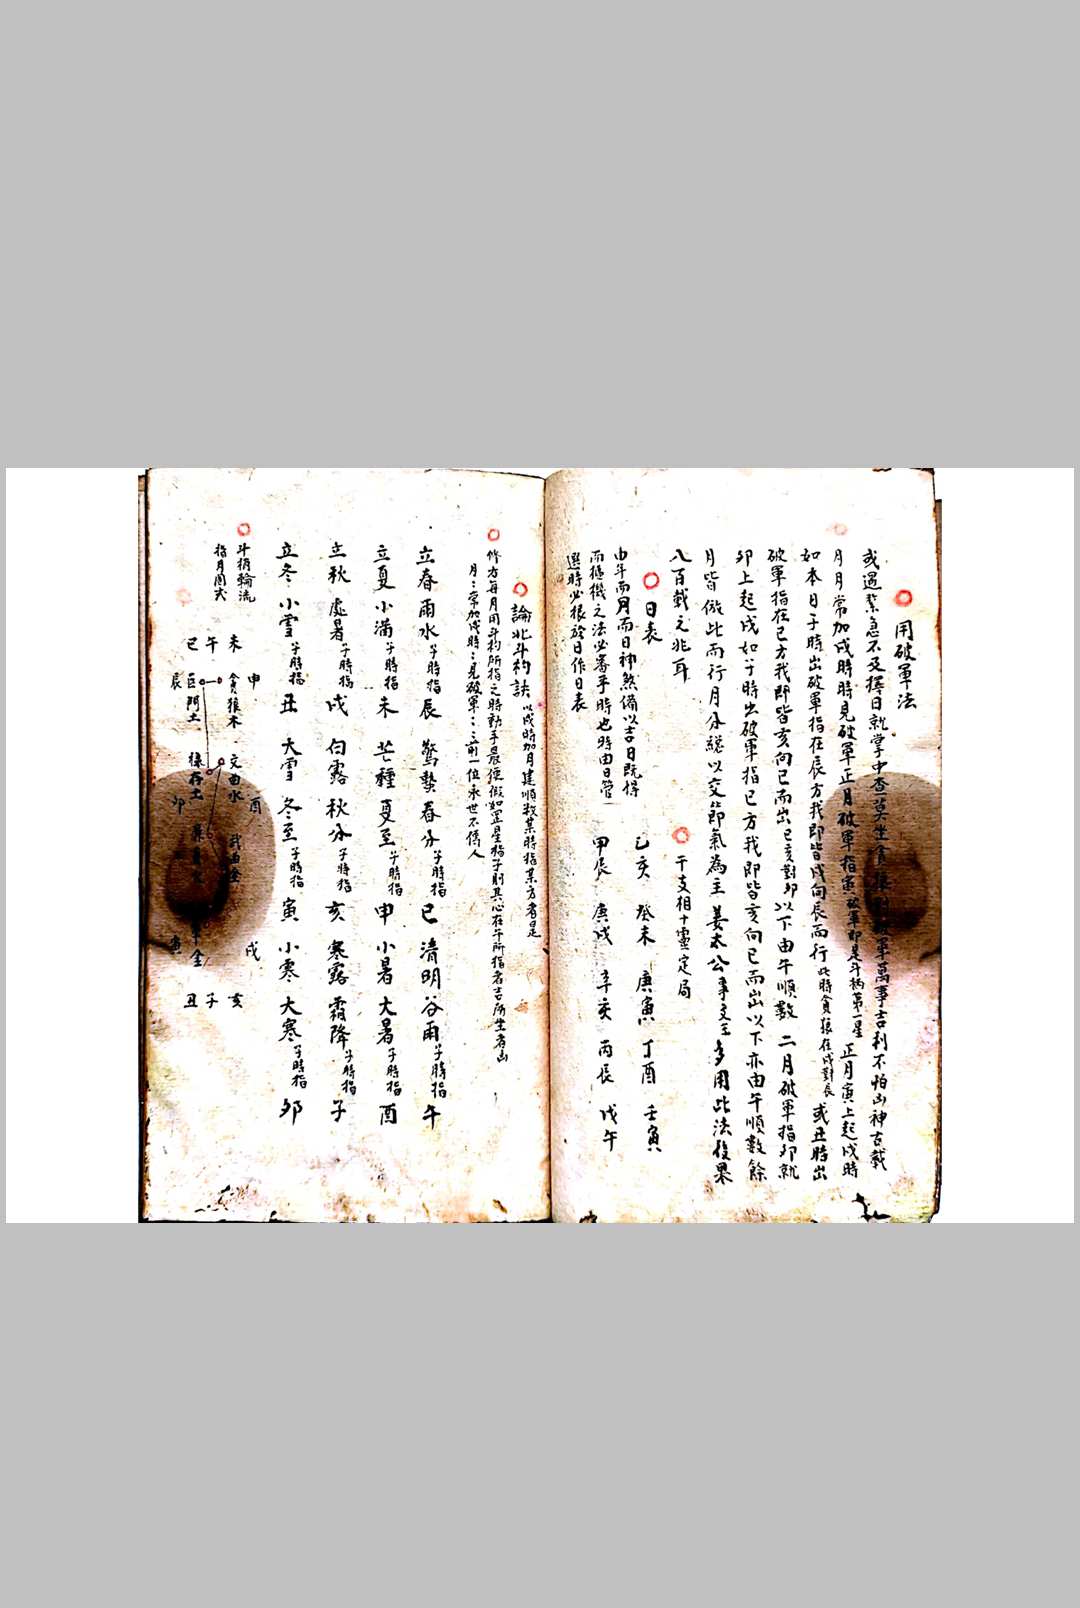 用破軍法
或遇緊急不及擇日就掌中查其坐貪狼 破軍萬事吉利不怕凶神古載
月月常加戌時時見破軍正月破軍指寅破軍即是斗柄第一星 正月寅上起戌時
如本日子時出破軍指在辰方我即皆戌向辰而行此時貪狼在戌對辰 或丑時出
破軍指在巳方我即皆亥向巳而出巳亥對卯以下由午順數 二月破軍指卯就
卯上起戌如子時出破軍指巳方我即皆亥向巳而出以下亦由午順數餘
月皆倣此而行月分總以交節氣為主 姜太公事文王多用此法後果
八百載之兆耳
日表
由年而月而日神煞備以吉日既得
而憑機之法必審乎時也時由日管
選時必根於日作日表
干支相十靈定局
乙亥 癸未 庚寅 丁酉 壬寅
甲辰 庚戌 辛亥 丙辰 戊午
論北斗杓訣 以戌時加月建順數某時指某方者是
修方每月用斗杓所指之時動手最便假如罡星指子則其心在午所指者吉所坐者凶
月〻常加戌時〻見破軍〻〻前一位永世不傳人
立春 雨水 子時指 辰 驚蟄 春分 子時指 巳 清明 谷雨 子時指 午
立夏 小滿 子時指 未 芒種 夏至 子時指 申 小暑 大暑 子時指 酉
立秋 處暑 子時指 戌 白露 秋分 子時指 亥 寒露 霜降 子時指 子
立冬 小雪 子時指 丑 大雪 冬至 子時指 寅 小寒 大寒 子時指 卯
斗柄輪流
指月圖式
未 午 巳
申 貪狼木 巨門土 辰
文曲水 祿存土
酉 卯
戌 金 寅
亥 子 丑